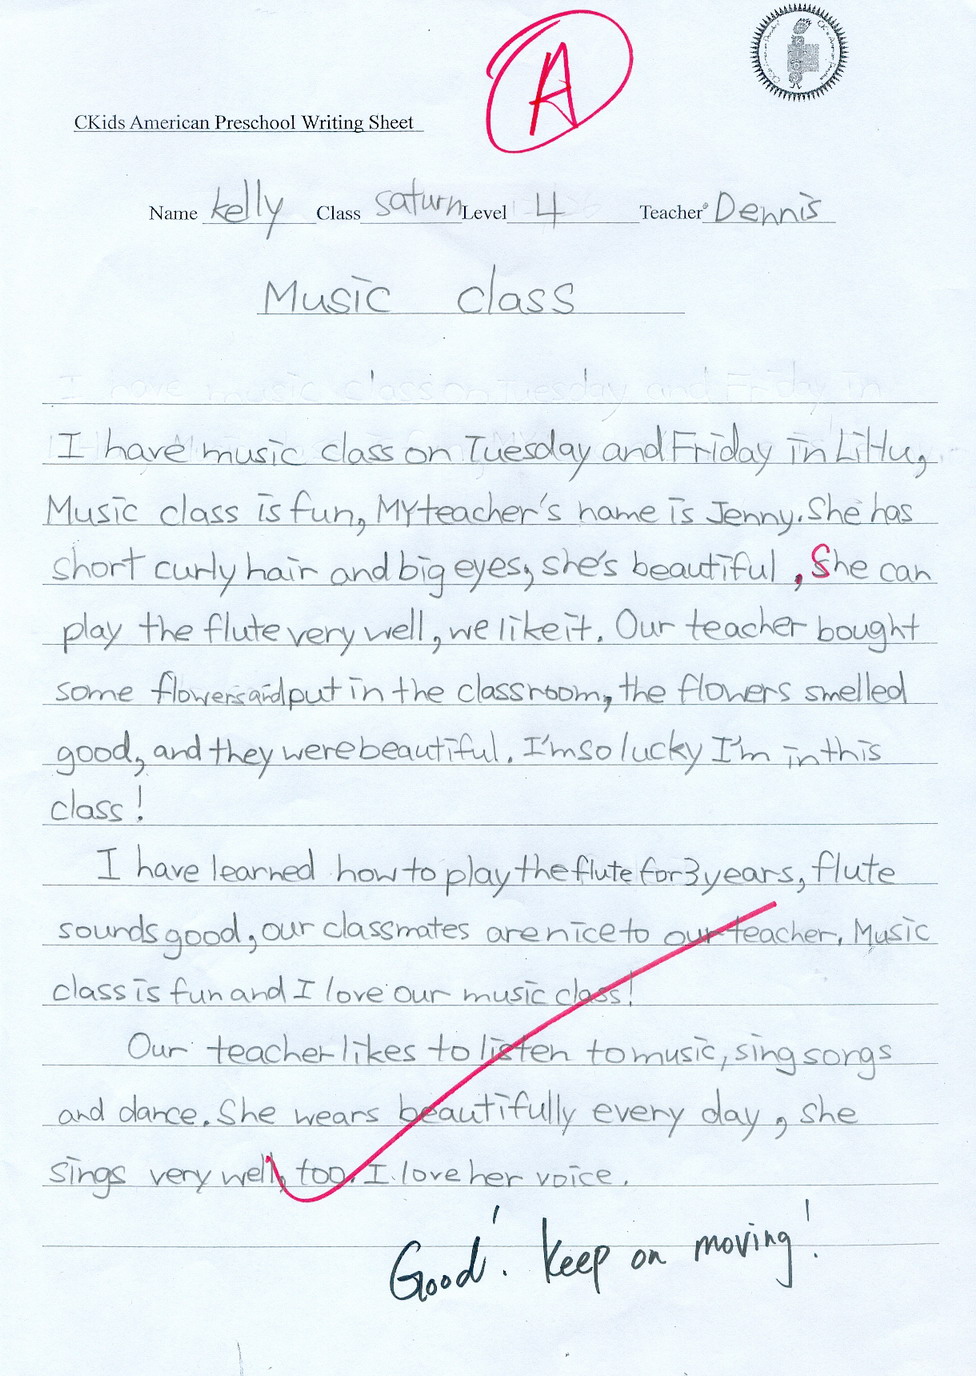 A
CKids American Preschool Writing Sheet
Name kelly Class saturn Level 4 Teacher Dennis
Music class
I have music class on Tuesday and Friday in
I have music class on Tuesday and Friday in LiHu,
Music class is fun, My teacher's name is Jenny. She has
short curly hair and big eyes, she's beautiful , She can
play the flute very well, we like it. Our teacher bought
some flowers and put in the classroom, the flowers smelled
good, and they were beautiful. I'm so lucky I'm in this
class!
I have learned how to play the flute for 3 years, flute
sounds good, our classmates are nice to our teacher. Music
class is fun and I love our music class!
Our teacher likes to listen to music, sing sorgs
and dance. She wears beautifully every day, she
sings very well, too. I love her voice.
Good! keep on moving!